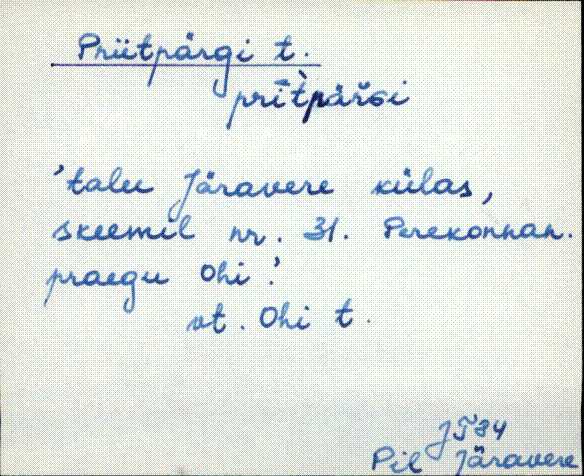 Priitpärgi t.
prīt̀pärǧi
'talu Järavere külas,
skeemil nr. 31. Perekonnan.
praegu Ohi.'
vt. Ohi t.
JT84
Pil Järavere